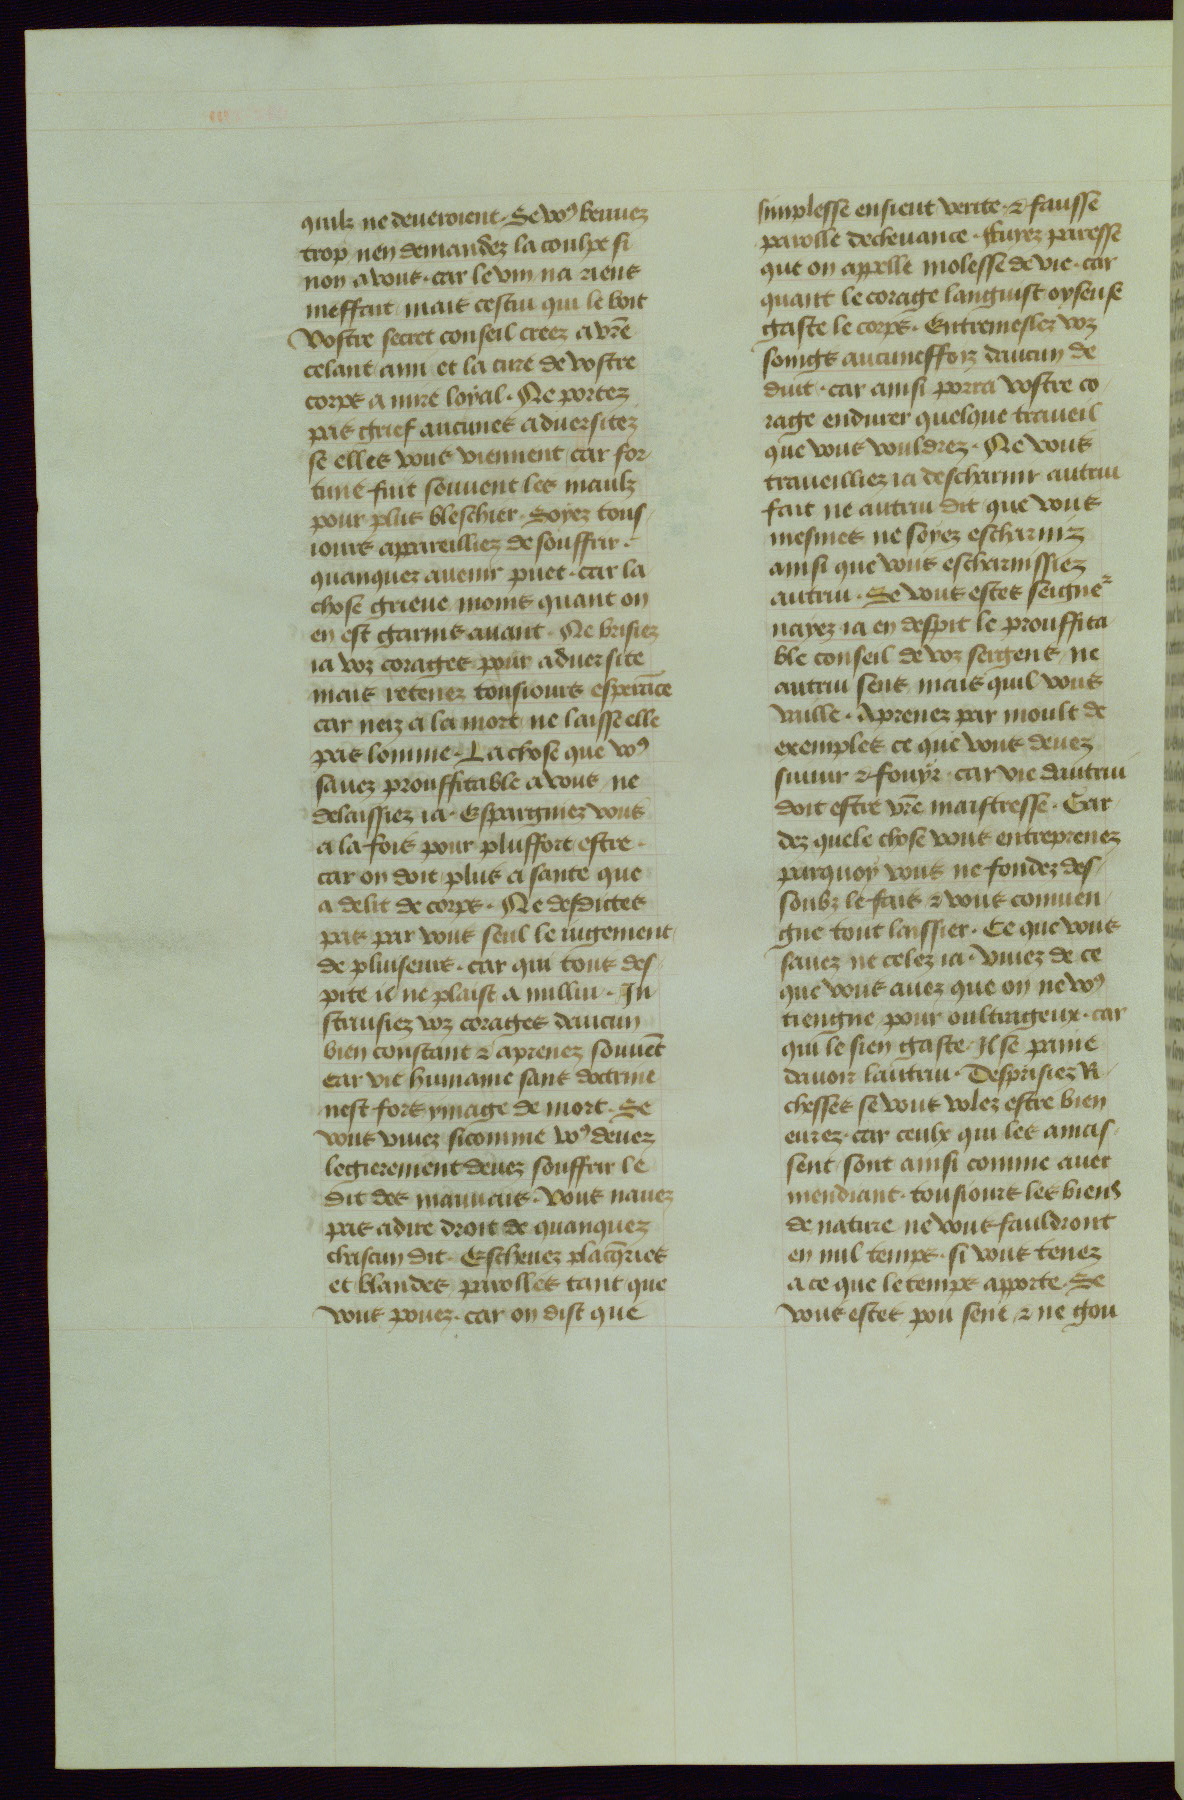 quilz ne deueroient. Se voꝰ beuuez
trop nen demandez la coulpe si
non a vous. car le vin na riens
meffait mais cestui qui le boit
Vostre secret conseil creez a vr̄e
celant ami et la cure de vostre
corps a mire loyal. Ne portez
pas grief aucunes aduersitez
se elles vous viennent car for
tune fuit souuent les maulz
pour plus bleschier. Soyez tous
iours apareilliez de souffrir
quanquez auenir puet. car la
chose grieue moins quant on
en est garnis auant. Ne brisiez
ia voz corages pour aduersite
mais retenez tousiours esperāce
car neiz a la mort ne laisse elle
pas lomme. La chose que voꝰ
sauez prouffitable a vous ne
delaissiez ia. Espargniez vous
a la fois pour pluffort estre.
car on doit plus a sante que
a delit de corps. Ne desdictes
pas par vous seul le iugement
de pluiseurs. car qui tous des
pite il ne plaist a nullui. In
struisiez voz corages daucun
bien constant ⁊ aprenez souuēt
Car vie humaine sans doctrine
nest fors ymage de mort. Se
vous viuez sicomme voꝰ deuez
legierement deuez souffrir le
dit des mauuais. Vous nauez
pas adire droit de quanquez
chascun dit. Escheuez
et blandes parolles tant que
vous pouez. car on dist que
simplesse ensieut verite. ⁊ fausse
parolle decheuance. Fuyez paresse
que on appelle molesse de vie. car
quant le corage languist oyseuse
gaste le corps. Entremeslez voz
soings aucuneffoiz daucun de
duit. car ainsi porra vostre co
rage endurer quelque traueil
que vous vouldrez. Ne vous
traueilliez ia descharnir autrui
fait ne autrui dit que vous
mesmes ne soyez escharniz
ainsi que vous escharnissiez
autrui. Se vous estes seigneᷣ
nayez ia en despit le prouffita
ble conseil de voz sergens ne
autrui sens mais quil vous
vaille. Aprenez par moult de
exemples ce que vous deuez
siuuir ⁊ fouyr. car vie dautrui
doit estre vr̄e maistresse. Gar
dez quele chose vous entreprenez
parquoy vous ne fondez des
soubz le fais ⁊ vous conuien
gne tout laissier. Ce que vous
sauez ne celez ia. viuez de ce
que vous auez que on ne voꝰ
tiengne pour oultrageux. car
qui le sien gaste. Il se paine
dauoir lautrui. Desprisiez Ri
chesses se vous volez estre bien
eurez. car ceulx qui les amas
sent sont ainsi comme auer
mendiant. tousiours les biens
de nature ne vous fauldront
en nul temps. si vous tenez
a ce que le temps apporte. Se
vous estes pou sene ⁊ ne gou